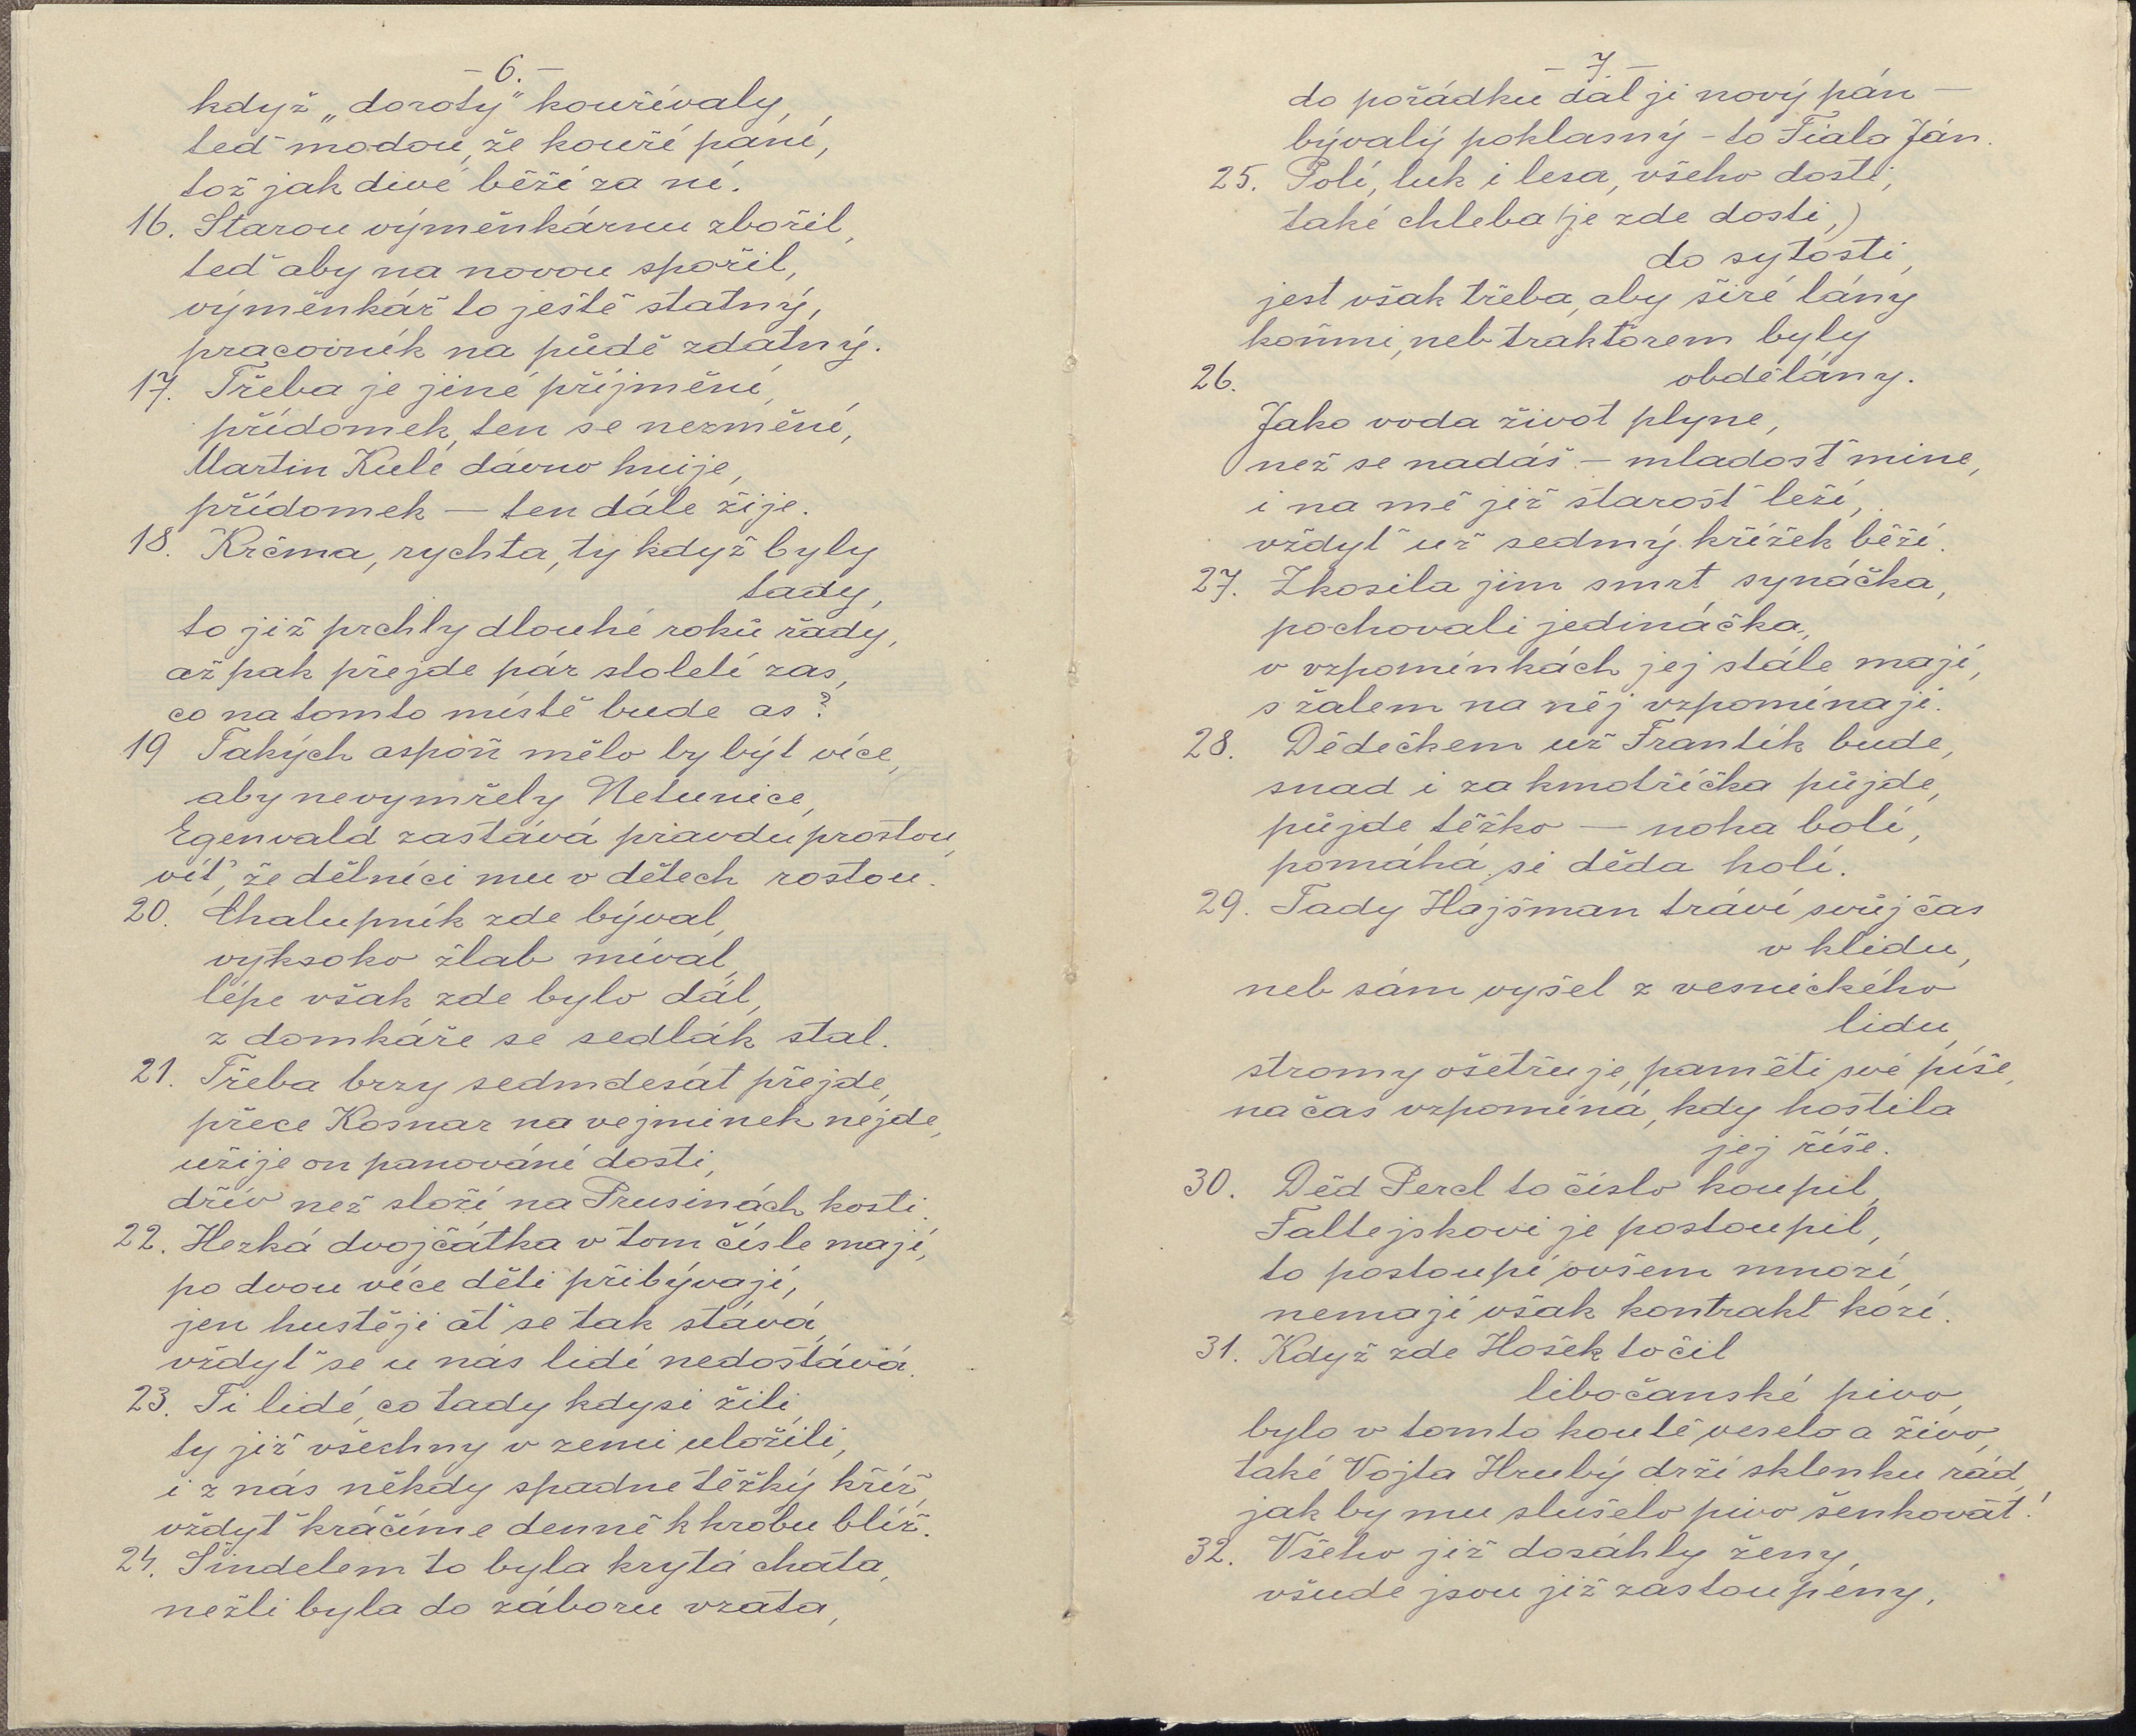 – 6. –
když „doroty" kouřívaly,
teď modou, že kouří páni,
tož jak diví běží za ní.
16. Starou výměnkárnu zbořil,
teď aby na novou spořil,
výměnkář to ještě statný,
pracovník na půdě zdatný.
17. Třeba je jiné příjmění,
přídomek, ten se nezmění,
Martin Kulí dávno hnije,
přídomek – ten dále žije.
18. Krčma, rychta, ty když byly
tady,
to již prchly dlouhé roků řady,
až pak přejde pár století zas,
co na tomto místě bude as?
19 Takých aspoň mělo by být více,
aby nevymřely Netunice,
Egenvald zastává pravdu prostou,
viť, že dělníci mu v dětech rostou.
20. Chalupník zde býval,
vyksoko žlab míval,
lépe však zde bylo dál,
z domkáře se sedlák stal.
21. Třeba brzy sedmdesát přejde,
přece Kosnar na vejminek nejde,
užije on panování dosti,
dřív než složí na Prusinách kosti.
22. Hezká dvojčátka v tom čísle mají,
po dvou více děti přibývají,
jen hustěji ať se tak stává,
vždyť se u nás lidí nedostává.
23. Ti lidé, co tady kdysi žili,
ty již všechny v zemi uložili,
i z nás někdy spadne těžký kříž,
vždyť kráčíme denně k hrobu blíž.
24. Šindelem to byla krytá chata,
nežli byla do záboru vzata,
– 7 –
do pořádku dal ji nový pán –
bývalý poklasný – to Fiala Ján.
25. Polí, luk i lesa, všeho dosti,
také chleba (je zde dosti,)
do sytosti,
jest však třeba, aby širé lány
koňmi, neb traktorem byly
obdělány.
26.
Jako voda život plyne,
než se nadáš – mladost mine,
i na mě již starost leží,
vždyť už sedmý křížek běží.
27. Zkosila jim smrt synáčka,
pochovali jedináčka,
v vzpomínkách jej stále mají,
s žalem na něj vzpomínají.
28. Dědečkem už Frantík bude,
snad i za kmotříčka půjde,
půjde těžko – noha bolí,
pomáhá si děda holí.
29. Tady Hajšman tráví svůj čas
v klidu,
neb sám vyšel z vesnického
lidu,
stromy ošetřuje, paměti své píše,
na čas vzpomíná, kdy hostila
jej říše.
30. Děd Percl to číslo koupil,
Faltejskovi je postoupil,
to postoupí ovšem mnozí,
nemají však kontrakt kózí.
31. Když zde Hošek točil
libočanské pivo,
bylo v tomto koutě veselo a živo,
také Vojta Hrubý drží sklenku rád,
jak by mu slušelo pivo šenkovat!
32. Všeho již dosáhly ženy,
všude jsou již zastoupeny,